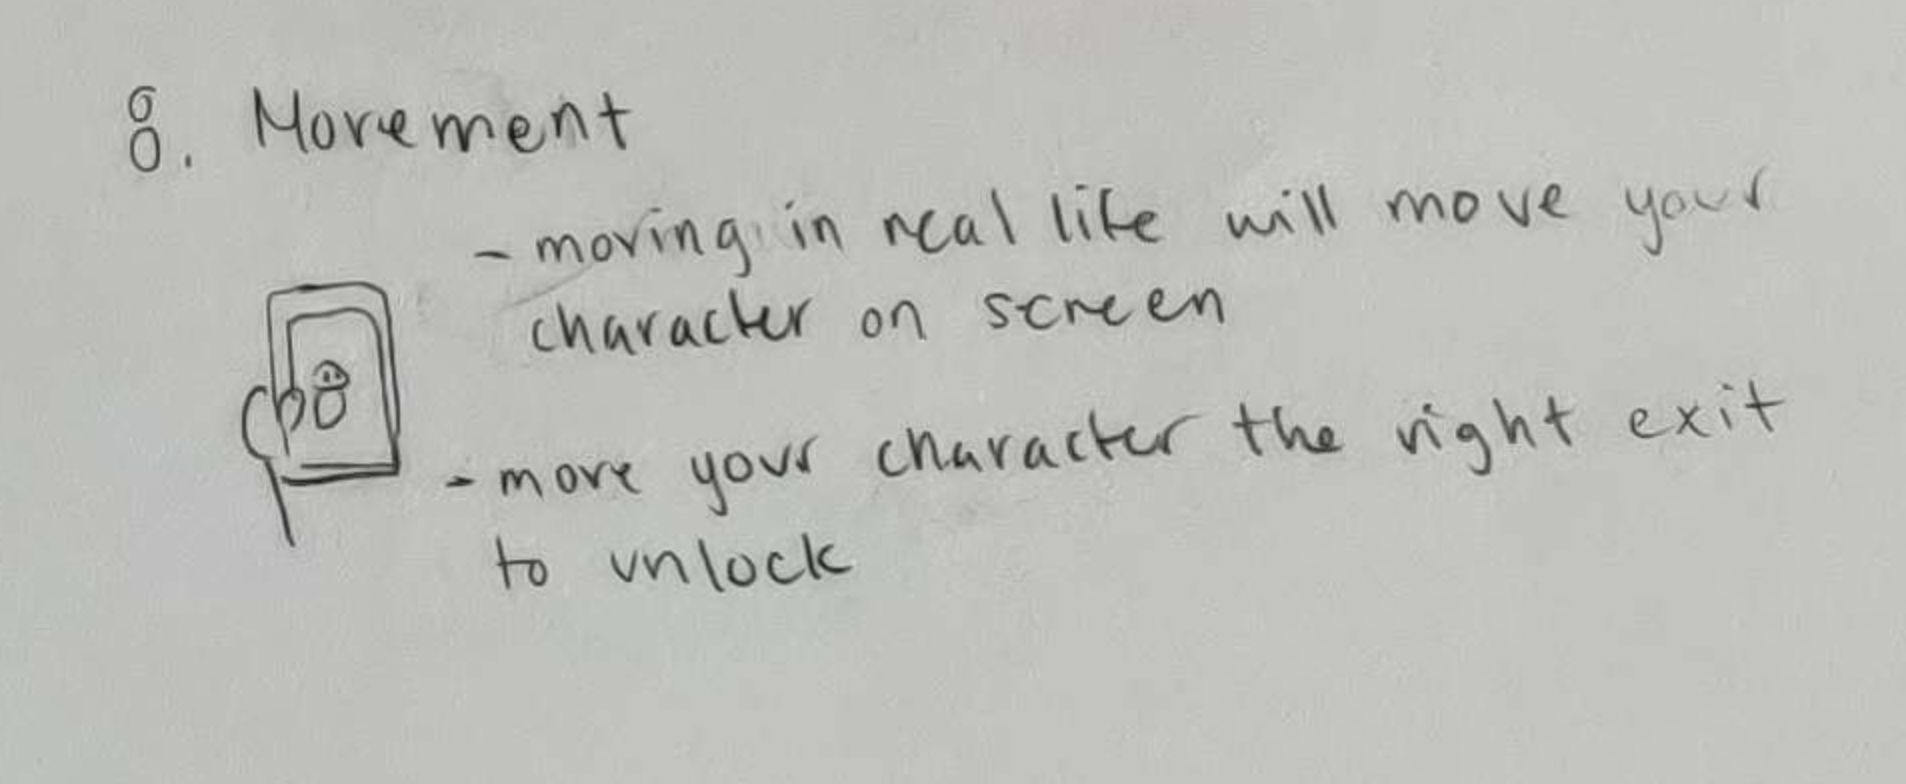 8. Movement
- moving in real life will move your
character on screen
- move your character the right exit
to unlock